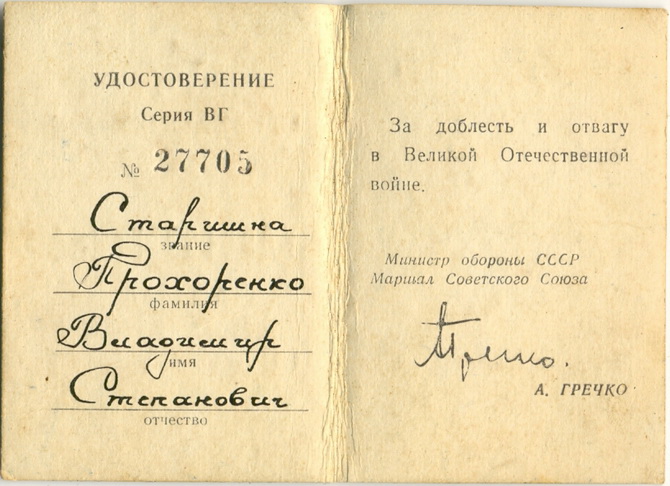 УДОСТОВЕРЕНИЕ
Серия ВГ
№ 27705
Старшина
звание
Прохоренко
фамилия
Владимир
имя
Степанович
отчество
За доблесть и отвагу
в Великой Отечественной
войне.
Министр обороны СССР
Маршал Советского Союза
Гречко.
А. ГРЕЧКО